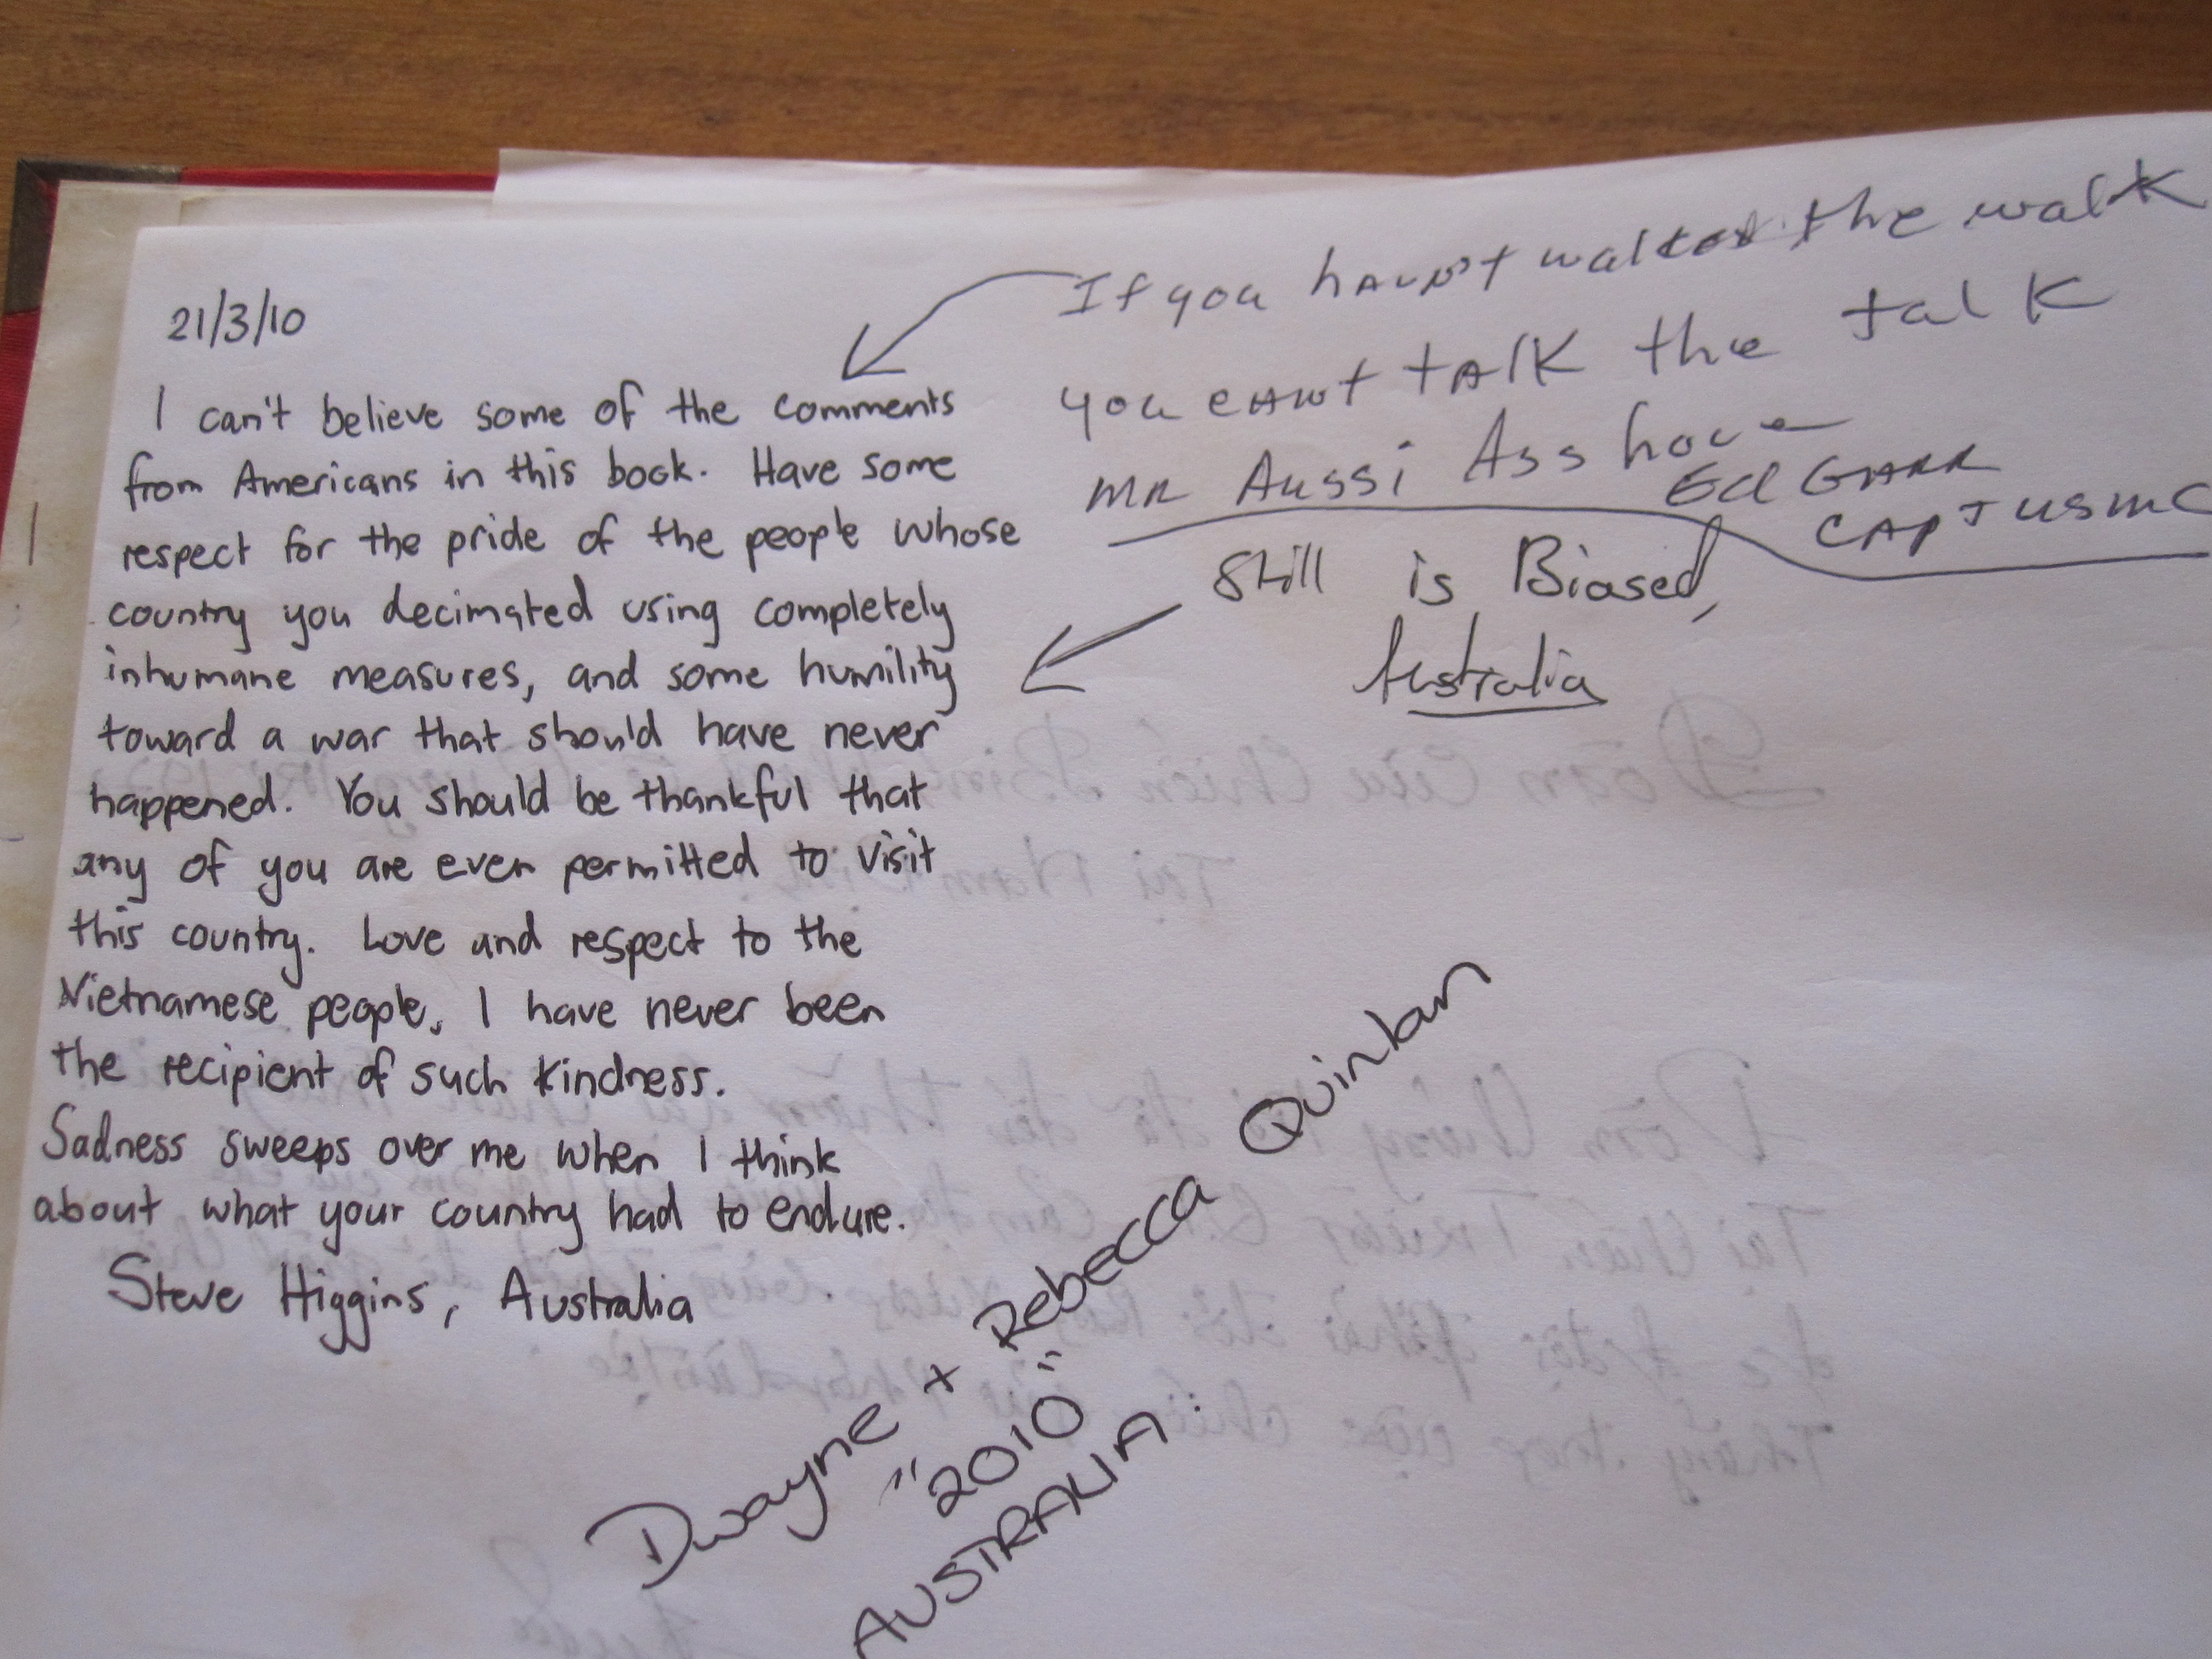 21/3/10
I can't believe some of the comments
from Americans in this book. Have some
respect for the pride of the people whose
country you decimated using completely
inhumane measures, and some humility
toward a war that should have never
happened. You should be thankful that
any of you are even permitted to visit
this country. Love and respect to the
Vietnamese people, I have never been
the recipient of such kindness.
Sadness sweeps over me when I think
about what your country had to endure.
Steve Higgins, Australia
If you havn't walked the walk
you cannt talk the talk
Mr Aussi Asshole
Ed Garr
Capt USMC
Still is Biased,
Australia
Dwayne + Rebecca Quinlan
"2010"
AUSTRALIA: